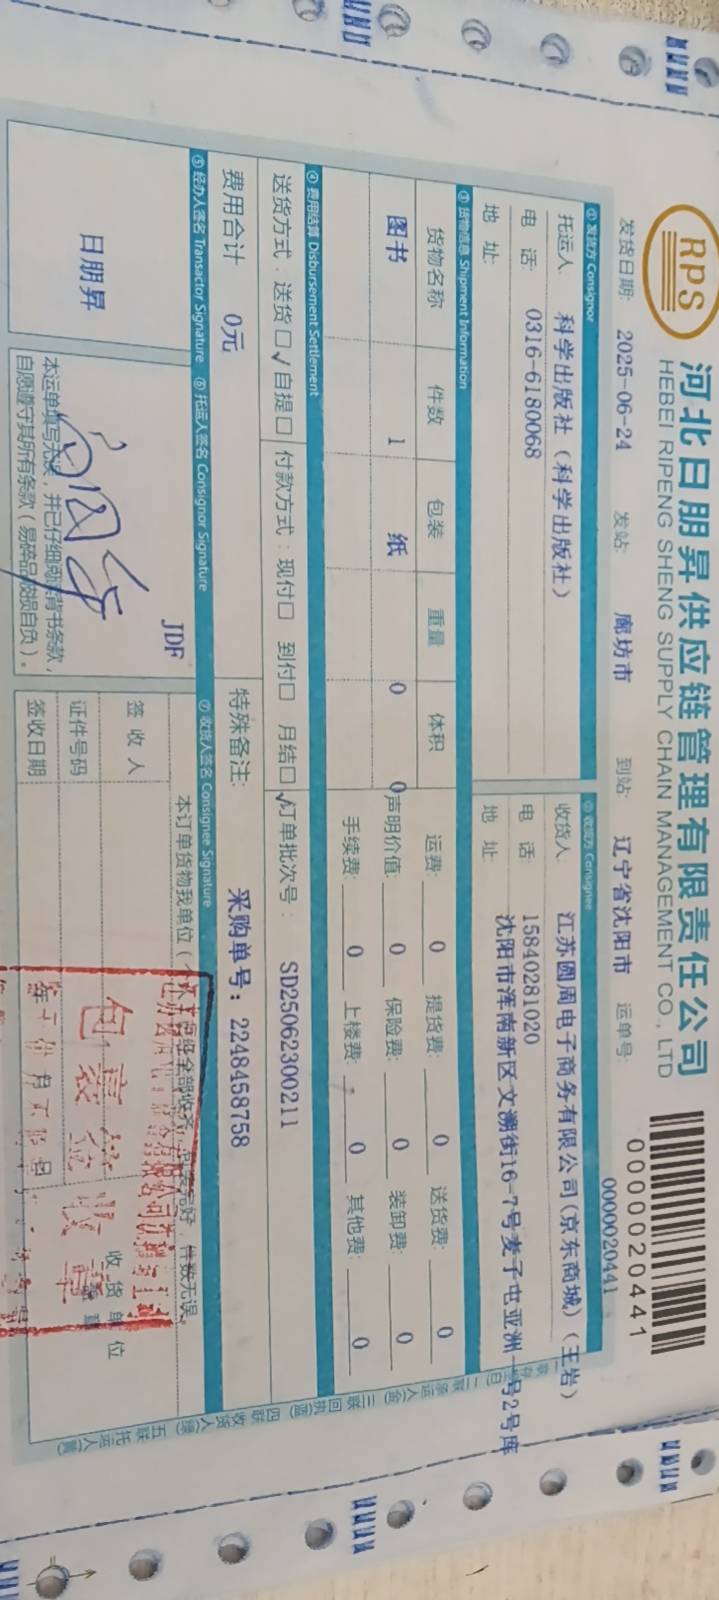 RPS
河北日朋昇供应链管理有限责任公司
HEBEI RIPENG SHENG SUPPLY CHAIN MANAGEMENT CO., LTD
0000020441
发货日期: 2025-06-24 发站: 廊坊市 到站: 辽宁省沈阳市 运单号: 0000020441
① 发货方 Consignor
② 收货方 Consignee
托运人: 科学出版社（科学出版社）
收货人: 江苏圆周电子商务有限公司(京东商城)（王岩）
电 话: 0316-6180068
电 话: 15840281020
地 址:
地 址: 沈阳市浑南新区文溯街16-7号麦子屯亚洲一号2号库
③ 货物信息 Shipment Information
货物名称 件数 包装 重量 体积
运费: 0 提货费: 0 送货费: 0
图书 1 纸 0 0
声明价值: 0 保险费: 0 装卸费: 0
手续费: 0 上楼费: 0 其他费: 0
④ 费用结算 Disbursement Settlement
送货方式: 送货□√自提□ 付款方式: 现付□ 到付□ 月结□√ 订单批次号: SD25062300211
费用合计 0元 特殊备注: 采购单号: 2248458758
⑤ 经办人签名 Transactor Signature
⑥ 托运人签名 Consignor Signature
⑦ 收货人签名 Consignee Signature
日朋昇
JDF
本运单填写无误，并已仔细阅读背书条款，
自愿遵守其所有条款（易碎品破损自负）。
本订单货物我单位（个人）
完好，件数无误。
签 收 人
证件号码
签收日期
收货单位
收章
联存
二联承运人
三联回执
四联收货人
五联托运人